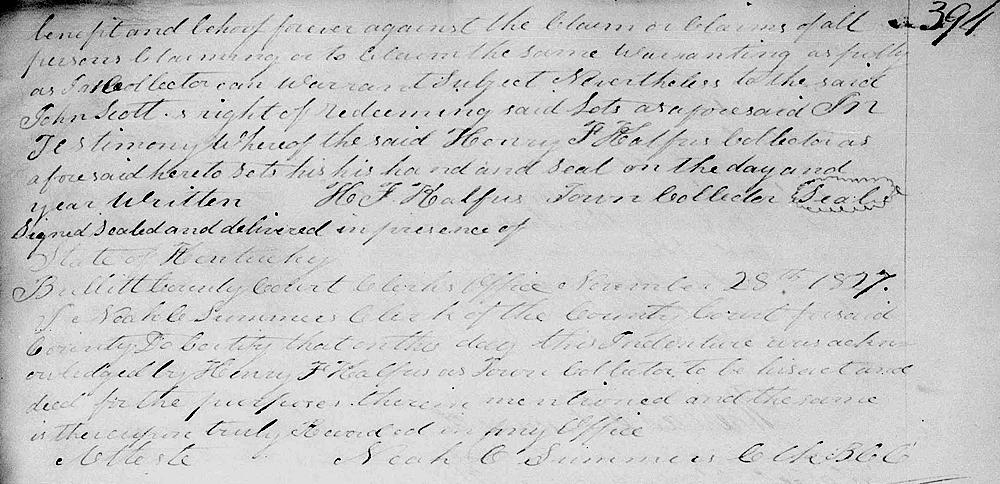 394
benefit and behoof forever against the Claim or Claims of all
persons Claiming or to Claim the same Warranting as fully
as I as Collector can Warrant Subject Nevertheless to the said
John Scott.s right of redeeming said Lots as aforesaid In
Testimony Whereof the said Henry F Kalfus Collector as
aforesaid hereto sets his his hand and seal on the day and
year Written H. F Kalfus Town Collector Seal
Signed Sealed and delivered in presence of
State of Kentucky
Bullitt County Court Clerks Office November 28th 1827.
I Noah C Summers Clerk of the County Court for said
County Do Certify that on this day this Indenture was ackn
owledged by Henry F Kalfus as Town Collector to be his act and
deed for the purposes therein mentioned and the same
is thereupon truly Recorded in my Office
Atteste Noah C Summers C Clk B C C